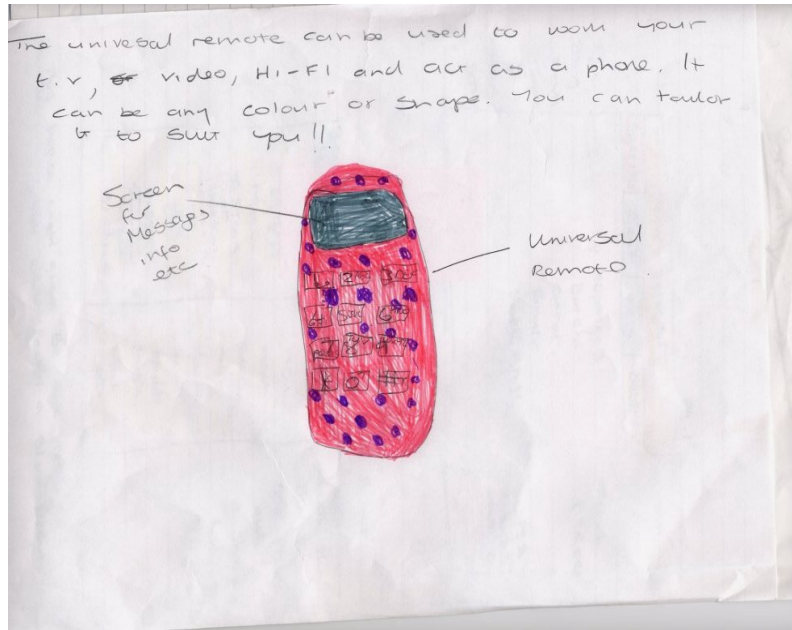 The univesal remote can be used to work your
t.v, video, Hi-Fi and act as a phone. It
can be any colour or shape. You can taulor
it to suit you!!
Screen
for
Messages
info
etc
Universal
Remote
1 2 3
4 5 6
7 8
* 0 #